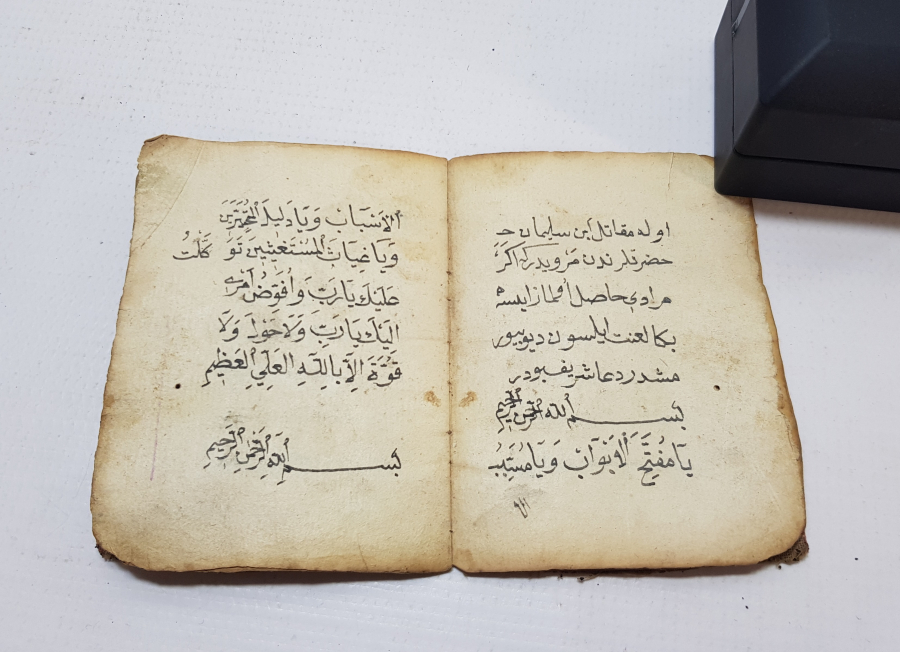 اوله مقاتل بن سليمان حـ
حضرتلرندن مرويدركه اكر
مرادى حاصل اولماز ايسه
بكا لعنت ايلسون ديو بيور
مشدر دعا شريف بودر
بسم الله الرحمن الرحيم
يَا مُفَتِّحَ الْاَبْوَابِ وَيَا مُسَبِّبَ
الْاَسْبَابِ وَيَا دَلِيلَ الْمُتَحَيِّرِينَ
وَيَا غِيَاثَ الْمُسْتَغِيثِينَ تَوَكَّلْتُ
عَلَيْكَ يَارَبِّ وَاُفَوِّضُ اَمْرِى
اِلَيْكَ يَارَبِّ وَلَا حَوْلَ وَلَا
قُوَّةَ اِلَّا بِاللّٰهِ الْعَلِىِّ الْعَظِيمِ
بسم الله الرحمن الرحيم